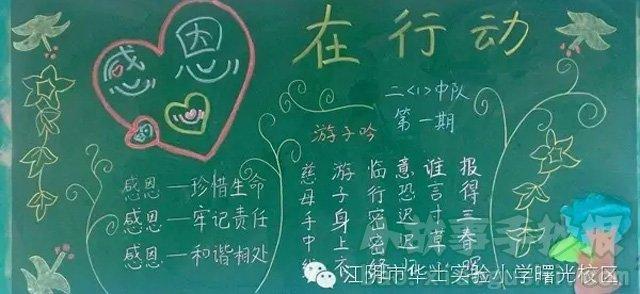 感恩
在行动
二<1>中队
第一期
游子吟
慈母手中线
游子身上衣
临行密密缝
意恐迟迟归
谁言寸草心
报得三春晖
感恩—珍惜生命
感恩—牢记责任
感恩—和谐相处
江阴市华士实验小学曙光校区